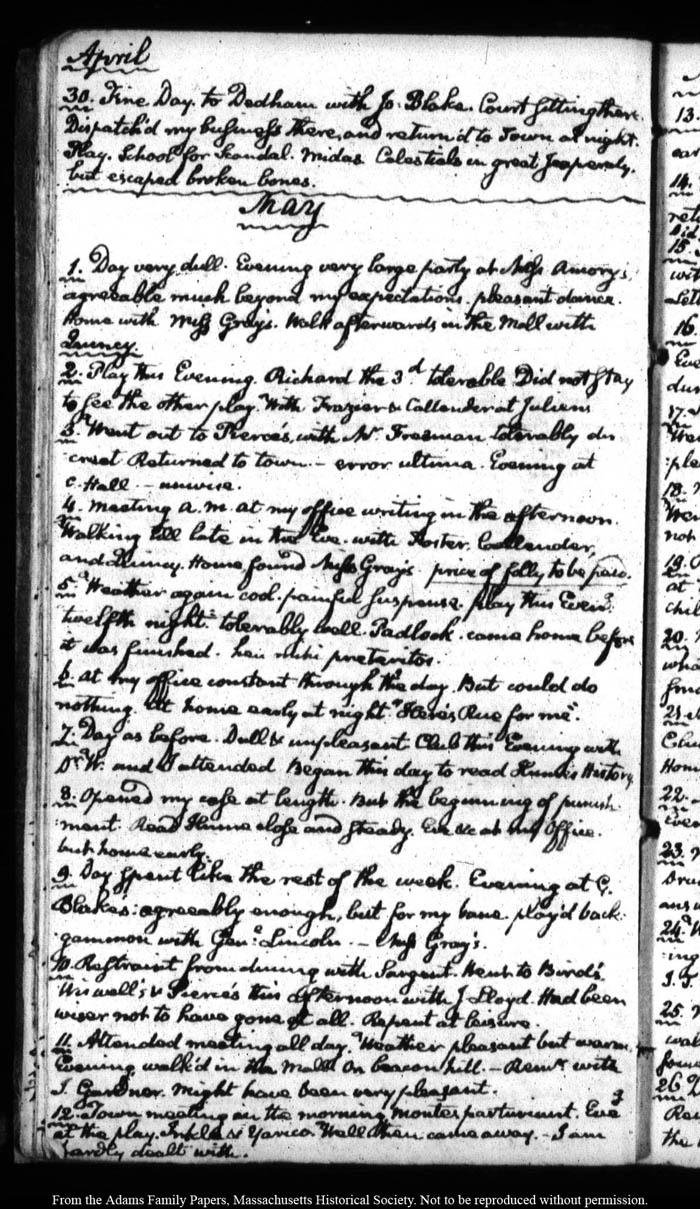 April
30. Fine Day. to Dedham with Jo: Blake. Court sitting there.
Dispatch'd my business there, and return'd to Town at night.
Play. School for Scandal. Midas. Celestials in great jeopardy,
but escaped broken bones.
May
1. Day very dull. Evening very large party at Mrs Amory's,
agreeable much beyond my expectations. pleasant dance.
home with Miss Gray's. Walk afterwards in the Mall with
Quincy.
2. Play this Evening. Richard the 3.d tolerable Did not stay
to see the other play. With Frazier & Callender at Juliens
3. Went out to Pierce's, with Mr. Freeman tolerably dis
creet Returned to town. – error ultima. Evening at
C. Hall. – unwise.
4. Meeting a.m. at my office writing in the afternoon.
Walking till late in the Eve. with Foster, Callender,
and Quincy. Home, found Miss Gray's. price of folly to be paid.
5. Weather again cool. painful suspense. play this Eveng.
twelfth night. tolerably well. Padlock. came home before
it was finished. heu mihi preteritos.
6. At my office constant through the day. But could do
nothing. At home early at night. "Here's Rue for me".
7. Day as before. Dull & unpleasant Club this Evening with
Dr. W. and I attended Began this day to read Hume's History
8. Opened my case at length. But the beginning of punish
ment. Read Hume close and steady. Eve &c at my Office.
but home early.
9. Day spent like the rest of the week. Evening at G.
Blake's: agreeably enough, but for my bane. play'd back-
gammon with Genl. Lincoln. – Miss Gray's.
10. Restraint from dining with Sargent. Went to Bird's
Wiswell's & Pierce's this afternoon with J. Lloyd. Had been
wiser not to have gone at all. Repent at leisure.
11. Attended meeting all day. Weather pleasant but warm.
Evening walk'd in the Mall On beacon hill. – Remk. with
J. Gardner. Might have been very pleasant.
12. Town meeting in the morning. Montes parturiunt. Eveg
at the play. Inkle & Yarico. Well then came away. – I am
hardly dealt with.
13.
ear
14.
retu
Did
15.
wit
Lett
16.
Eve
dur
17.
Wen
plea
18.
Wen
not
19.
at
chil
20.
wha
from
21.
Club
Hom
22.
Even
23.
Drea
answ
24.
ing
J. J.
25.
wal
foun
26
Rea
the
From the Adams Family Papers, Massachusetts Historical Society. Not to be reproduced without permission.